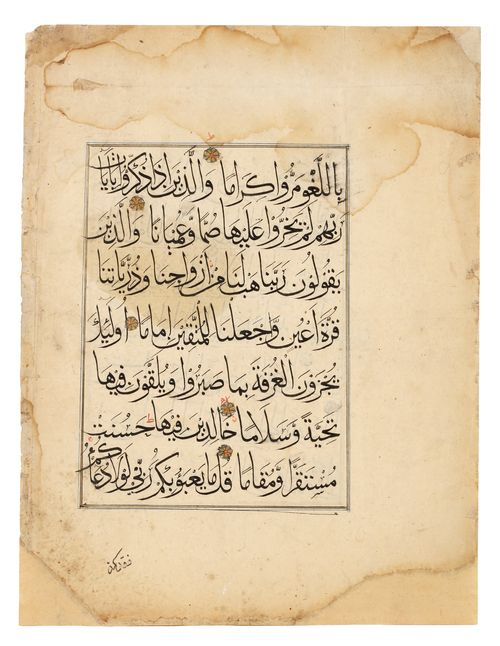 بِاللَّغْوِ مَرُّوا كِرَامًا وَالَّذِينَ إِذَا ذُكِّرُوا بِآيَاتِ
رَبِّهِمْ لَمْ يَخِرُّوا عَلَيْهَا صُمًّا وَعُمْيَانًا وَالَّذِينَ
يَقُولُونَ رَبَّنَا هَبْ لَنَا مِنْ أَزْوَاجِنَا وَذُرِّيَّاتِنَا
قُرَّةَ أَعْيُنٍ وَاجْعَلْنَا لِلْمُتَّقِينَ إِمَامًا أُولَئِكَ
يُجْزَوْنَ الْغُرْفَةَ بِمَا صَبَرُوا وَيُلَقَّوْنَ فِيهَا
تَحِيَّةً وَسَلَامًا خَالِدِينَ فِيهَا حَسُنَتْ
مُسْتَقَرًّا وَمُقَامًا قُلْ مَا يَعْبَؤُا بِكُمْ رَبِّي لَوْلَا دُعَاؤُكُمْ